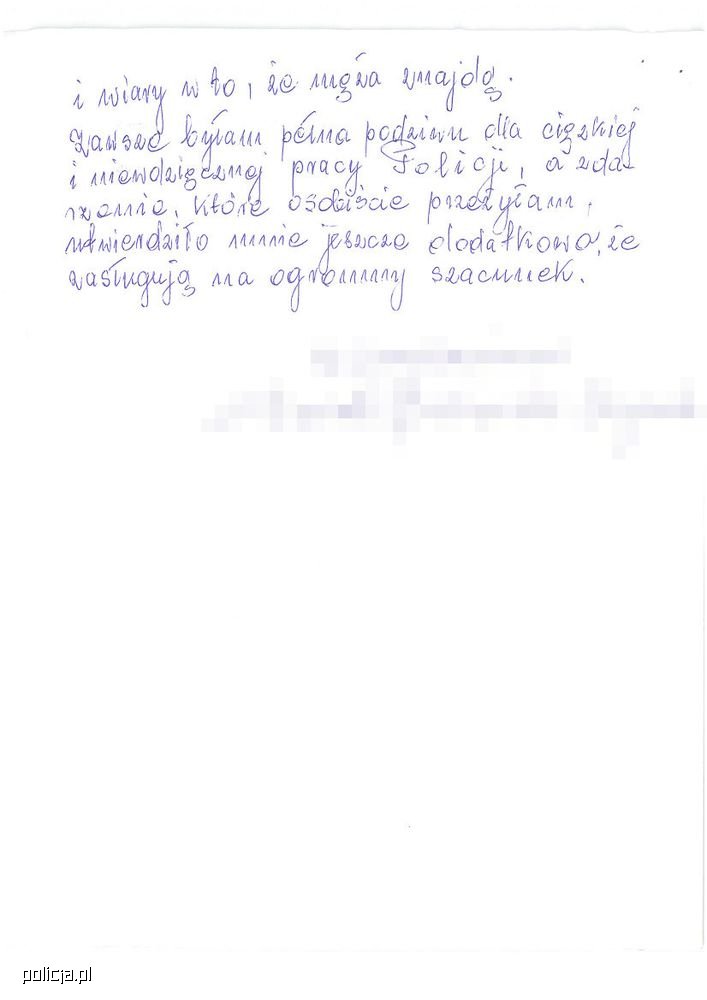 i wiary w to, że męża znajdą.
Zawsze byłam pełna podziwu dla ciężkiej
i niewdzięcznej pracy Policji, a zda-
rzenie, które osobiście przeżyłam,
utwierdziło mnie jeszcze dodatkowo, że
zasługują na ogromny szacunek.
policja.pl